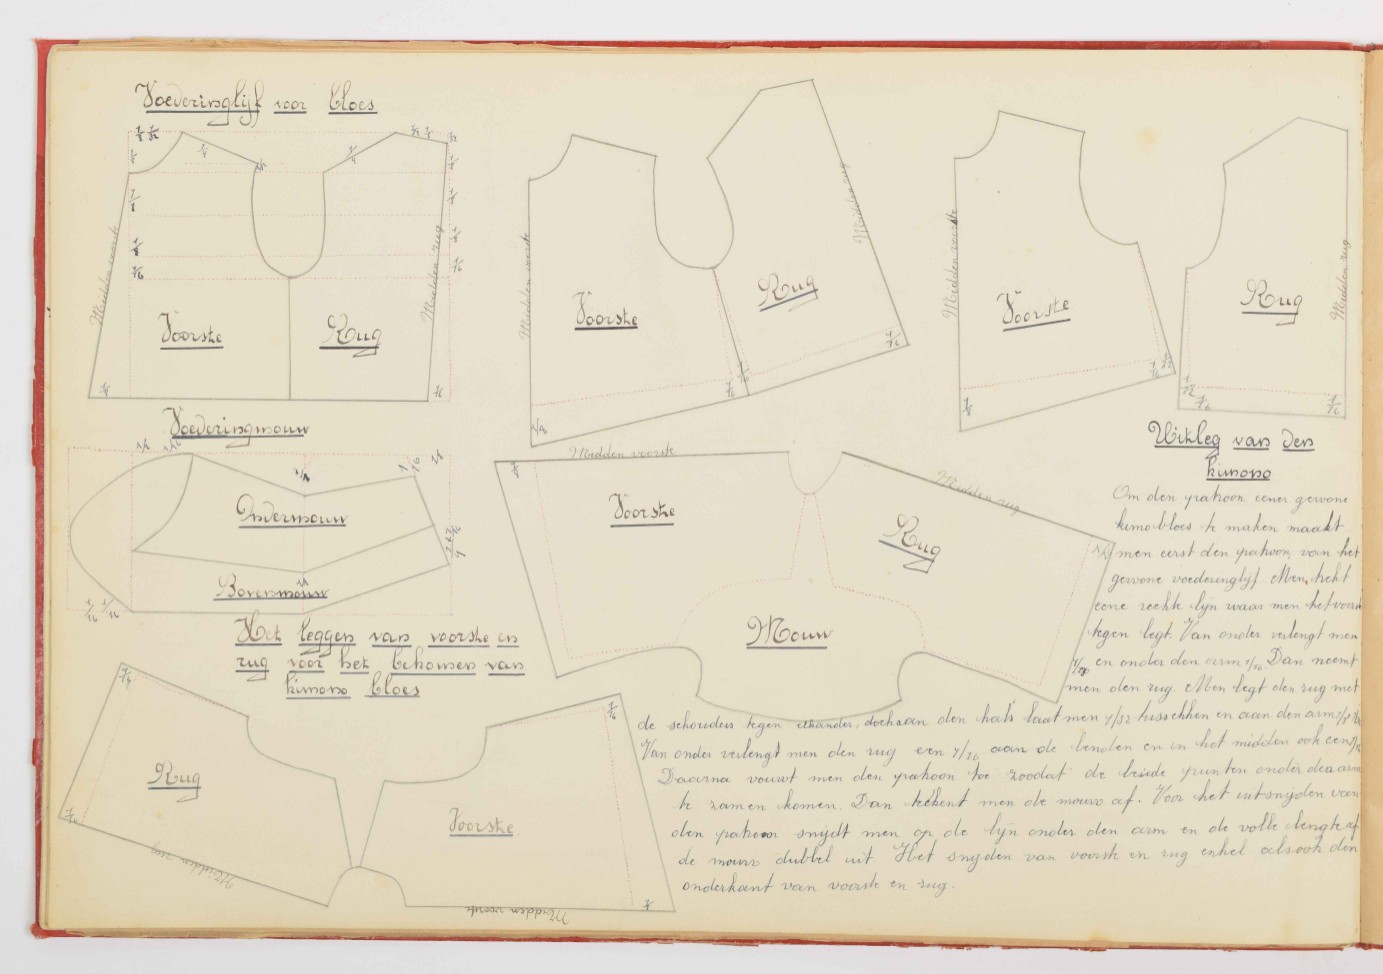 Voederinglijf voor bloes
Midden voorste
Voorste
Rug
Midden rug
Midden voorste
Voorste
Rug
Midden rug
Midden voorste
Voorste
Rug
Midden rug
Voederingmouw
Ondermouw
Bovenmouw
Het leggen van voorste en
rug voor het bekomen van
kimono bloes
Midden voorste
Voorste
Midden rug
Rug
Mouw
Rug
Midden rug
Voorste
Midden voorste
Uitleg van den
kimono
Om den patroon eener gewone
kimobloes te maken maakt
men eerst den patroon van het
gewone voederinglijf. Men trekt
eene rechte lijn waar men het voorste
tegen legt. Van onder verlengt men
en onder den arm Dan neemt
men den rug. Men legt den rug met
de schouders tegen elkander, doch aan den hals laat men 1/32 tusschen en aan den arm
Van onder verlengt men den rug een 1/16 aan de lenden en in het midden ook een
Daarna vouwt men den patroon toe zoodat de beide punten onder den arm
te zamen komen. Dan tekent men de mouw af. Voor het uitsnyden van
den patroon snydt men op de lyn onder den arm en de volle lengte af
de mouw dubbel uit. Het snyden van voorste en rug enkel alsook den
onderkant van voorste en rug.